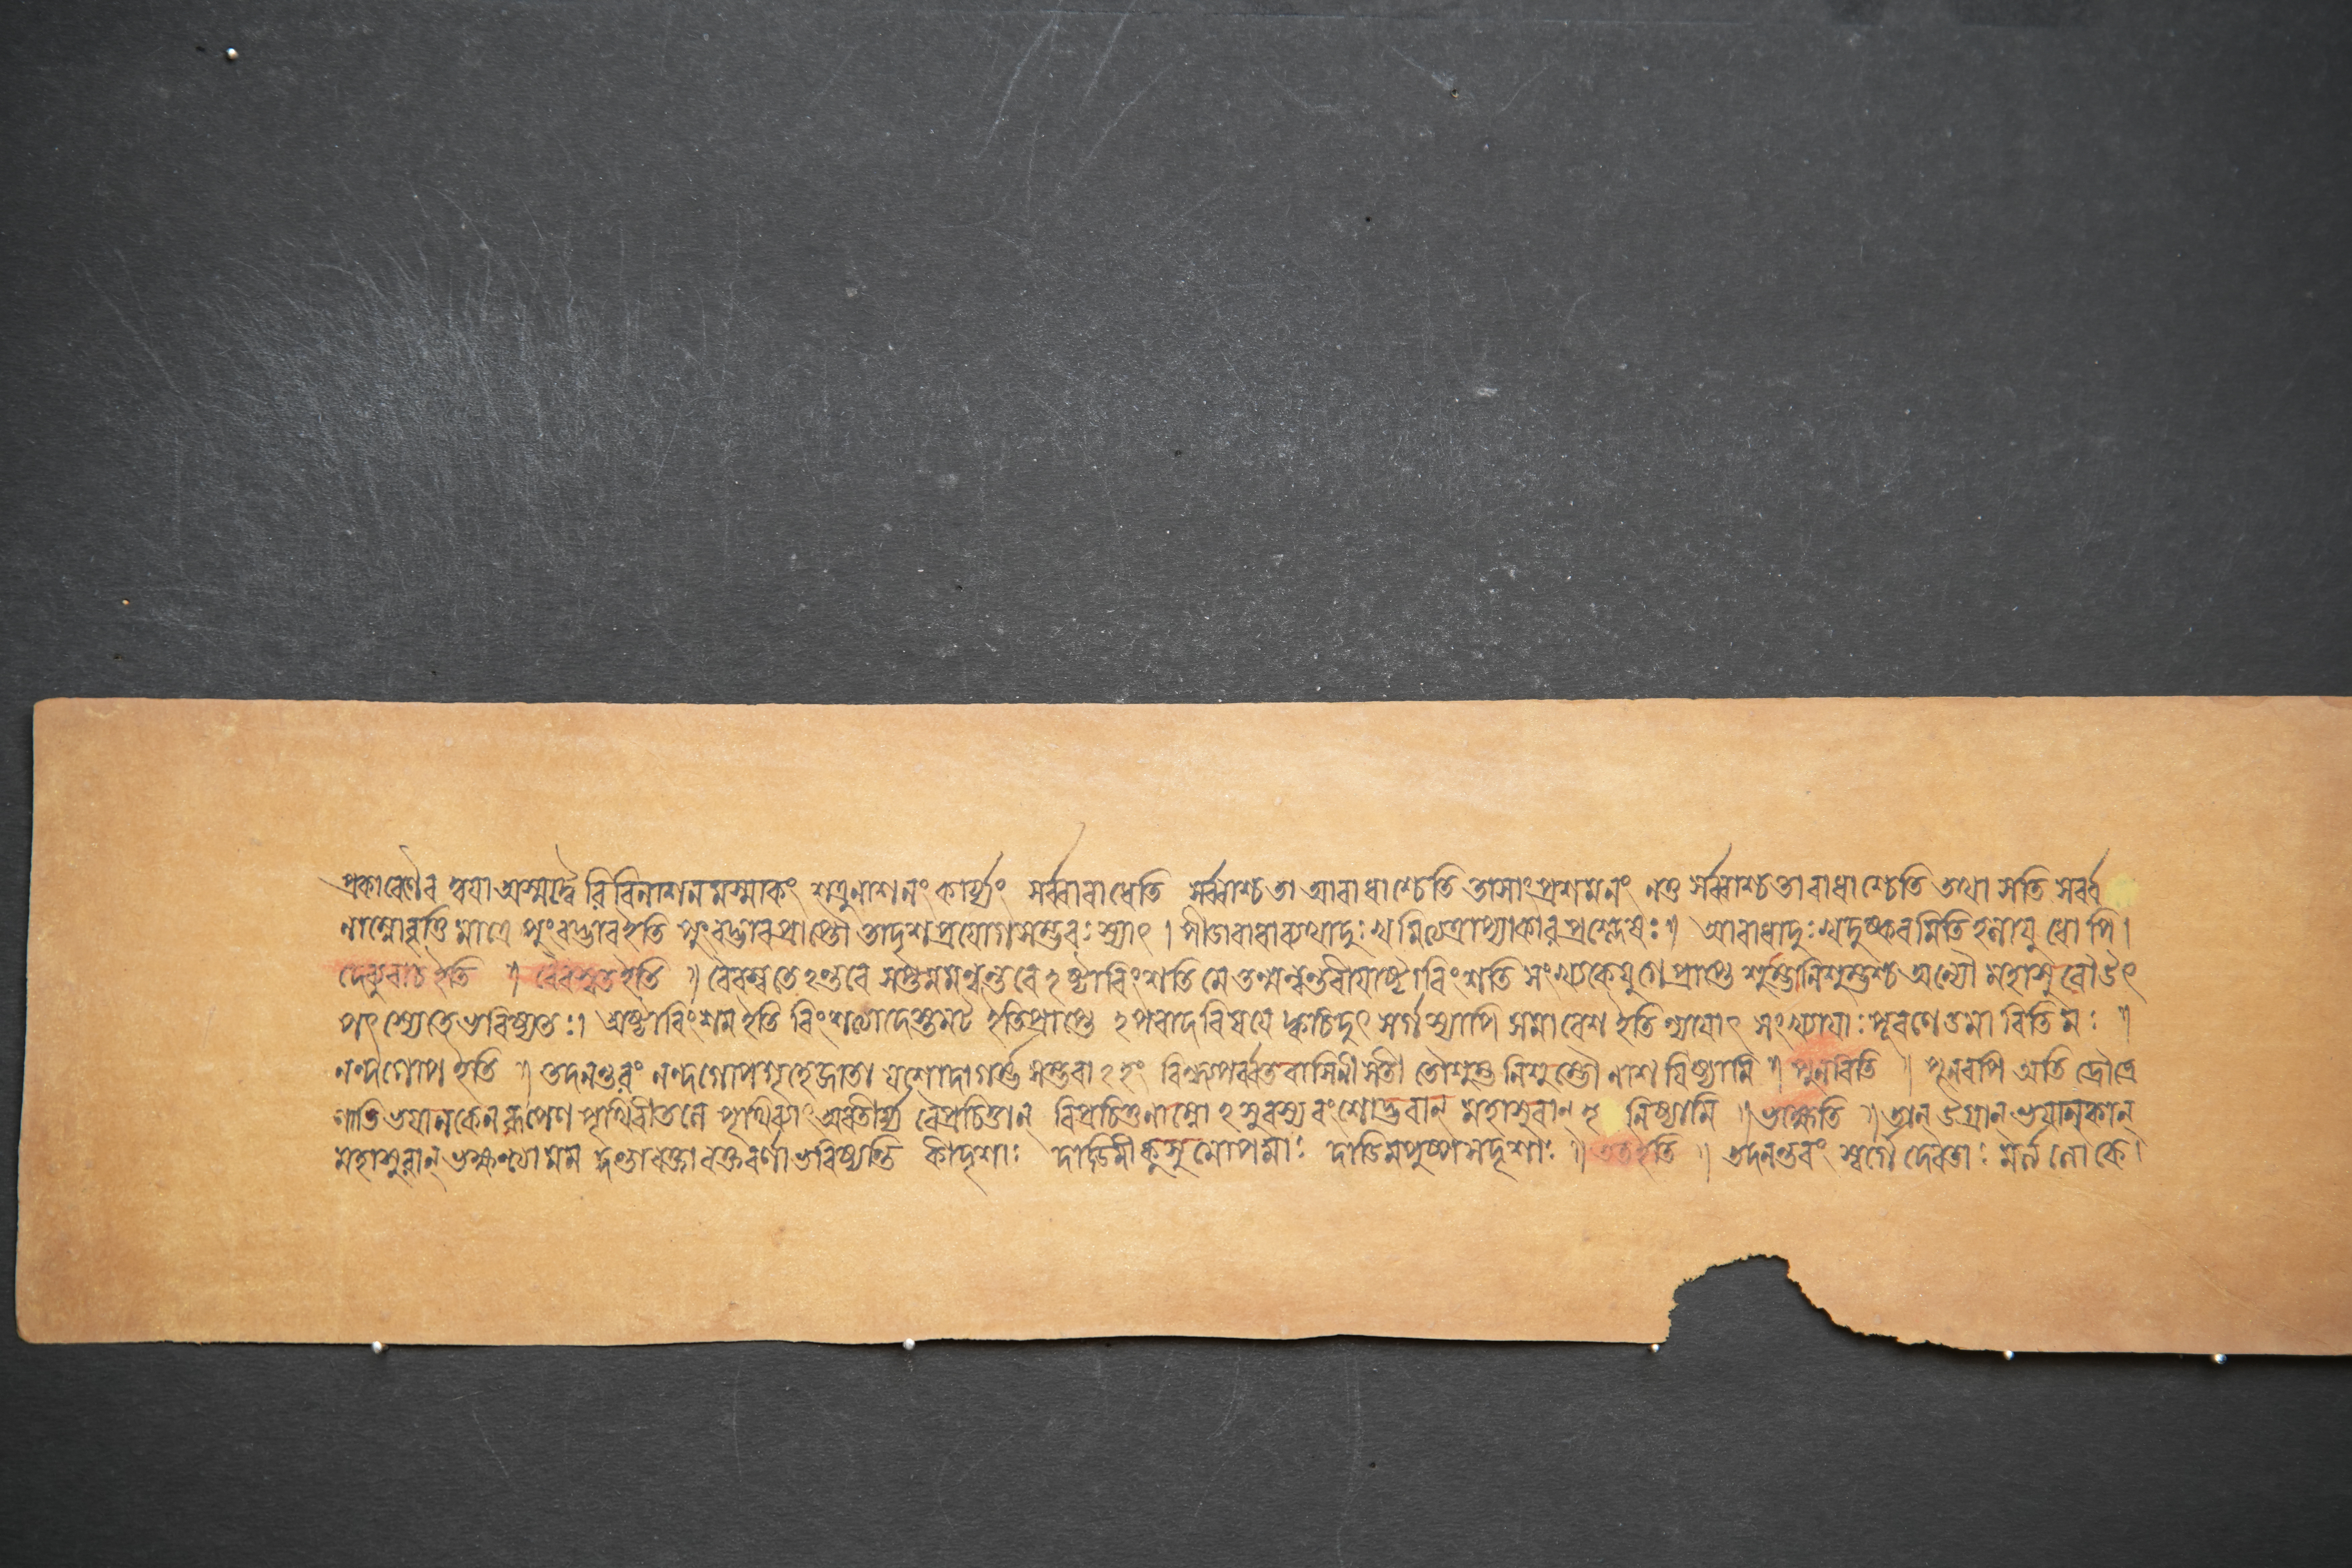 প্রকাৰেণৈব ত্বযা অস্মদ্বৈরিবিনাশনমস্মাকং শত্রুনাশনং কার্য্যং সর্ব্বাবাধেতি সর্ব্বাশ্চতা আবাধাশ্চেতি তাসাংপ্রশমনং নতু সর্ব্বাশ্চতাবাধাশ্চেতি তথা সতি সর্ব্ব
নাম্নোবৃত্তি মাত্রে পুংবদ্ভাবইতি পুংবদ্ভাবপ্রাপ্তৌ তাদৃশপ্রযোগসম্ভবঃ স্যাৎ । পীডাবাধাব্যথাদুঃখ প্রশ্লেষঃ ॥ আবাধাদুঃখদুষ্করমিতি
দেব্যুবাচ ইতি ॥ বৈবস্বতইতি ॥ বৈবস্বতেঽন্তৰে সপ্তমমন্বন্তৰেঽষ্টাবিংশতিমে তন্মন্বন্তৰীযাষ্টাবিংশতি সংখ্যকেযুগেপ্রাপ্তে শুম্ভোনিশুম্ভশ্চ অন্যৌ মহাসুৰৌউৎ
পৎস্যেতেভবিষ্যতঃ । অষ্টাবিংশম ইতি ইতিপ্রাপ্তে ঽপবাদবিষযে ক্বচিদুৎসর্গস্যাপি সমাবেশ ইতি ন্যাযাৎ সংখ্যাযাঃ পূৰণেডমা ॥
নন্দগোপ ইতি ॥ তদনন্তৰং নন্দগোপগৃহেজাতা যশোদাগর্ভসম্ভবাঽহং বিন্ধ্যপর্ব্বতবাসিনী সতী তৌশুম্ভনিশুম্ভৌ নাশযিষ্যামি ॥ পুনৰিতি ॥ পুনৰপি অতি ৰৌদ্রে
ণাতিভযানকেনৰূপেণ পৃথিবীতলে পৃথিব্যাং অবতীর্য্য বৈপ্রচিত্তান্ বিপ্রচিত্তনাম্নোঽসুৰস্য বংশোদ্ভবান্ মহাসুৰান্ হনিষ্যামি ॥ ভক্ষেতি ॥ তান্ উগ্রান্ ভযানকান্
মহাসুৰান্ ভক্ষন্ত্যা মম দন্তাৰক্তা ৰক্তবর্ণাভবিষ্যন্তি কীদৃশাঃ দাডিমীকুসুমোপমাঃ দাডিমপুষ্পসদৃশাঃ ॥ ততইতি ॥ তদনন্তৰং স্বর্গে দেবতাঃ মর্ত্তলোকে ।